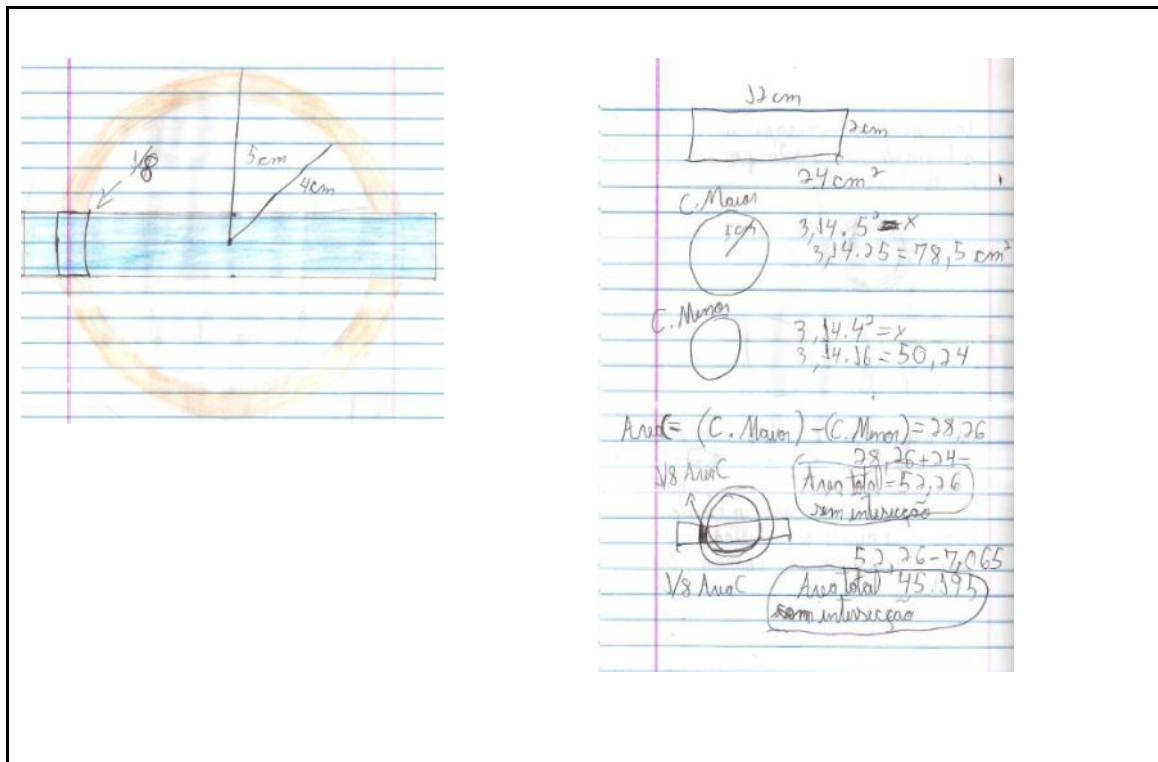 1/8
5cm
4cm
12 cm
2cm
24 cm²
C. Maior
5cm
3,14.5²=x
3,14.25=78,5 cm²
C. Menor
3,14.4²=x
3,14.16=50,24
AreaC= (C. Maior) - (C. Menor)=28,26
28,26+24=
1/8 AreaC
Area total=52,26
sem intersecção
52,26-7,065
1/8 AreaC
Area total 45.195
intersecção